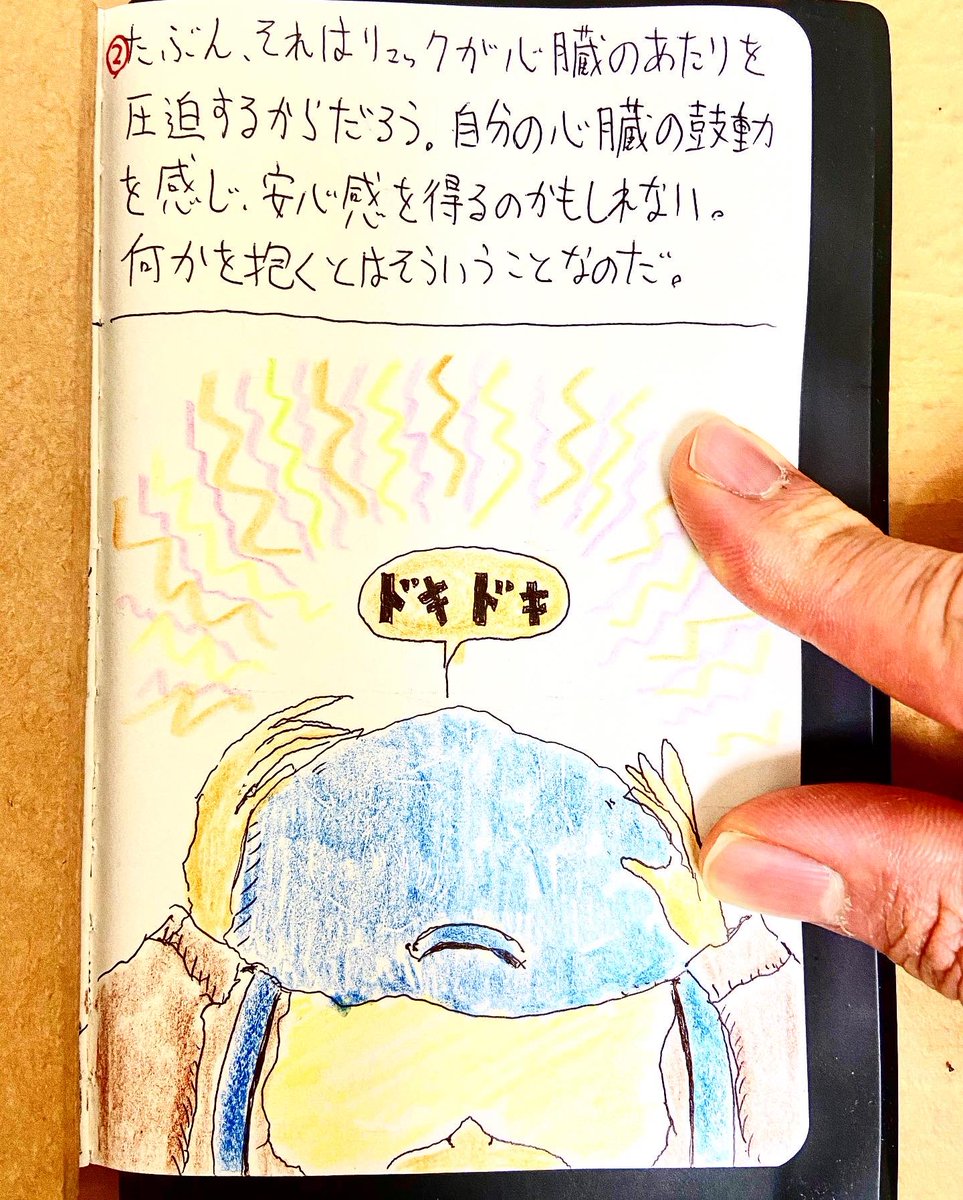 ②たぶん、それはリュックが心臓のあたりを
圧迫するからだろう。自分の心臓の鼓動
を感じ、安心感を得るのかもしれない。
何かを抱くとはそういうことなのだ。
ドキドキ